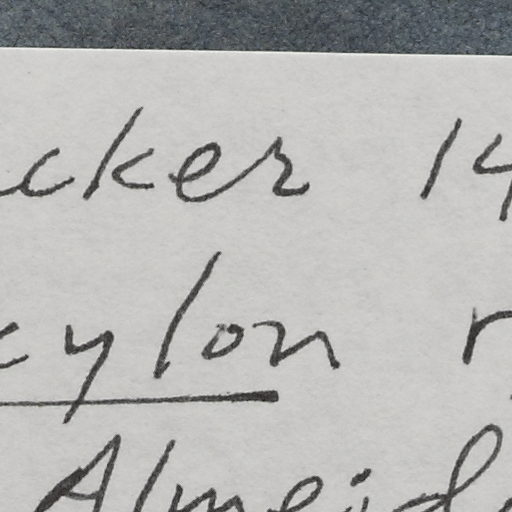 cker 14
eylon r
Almeida